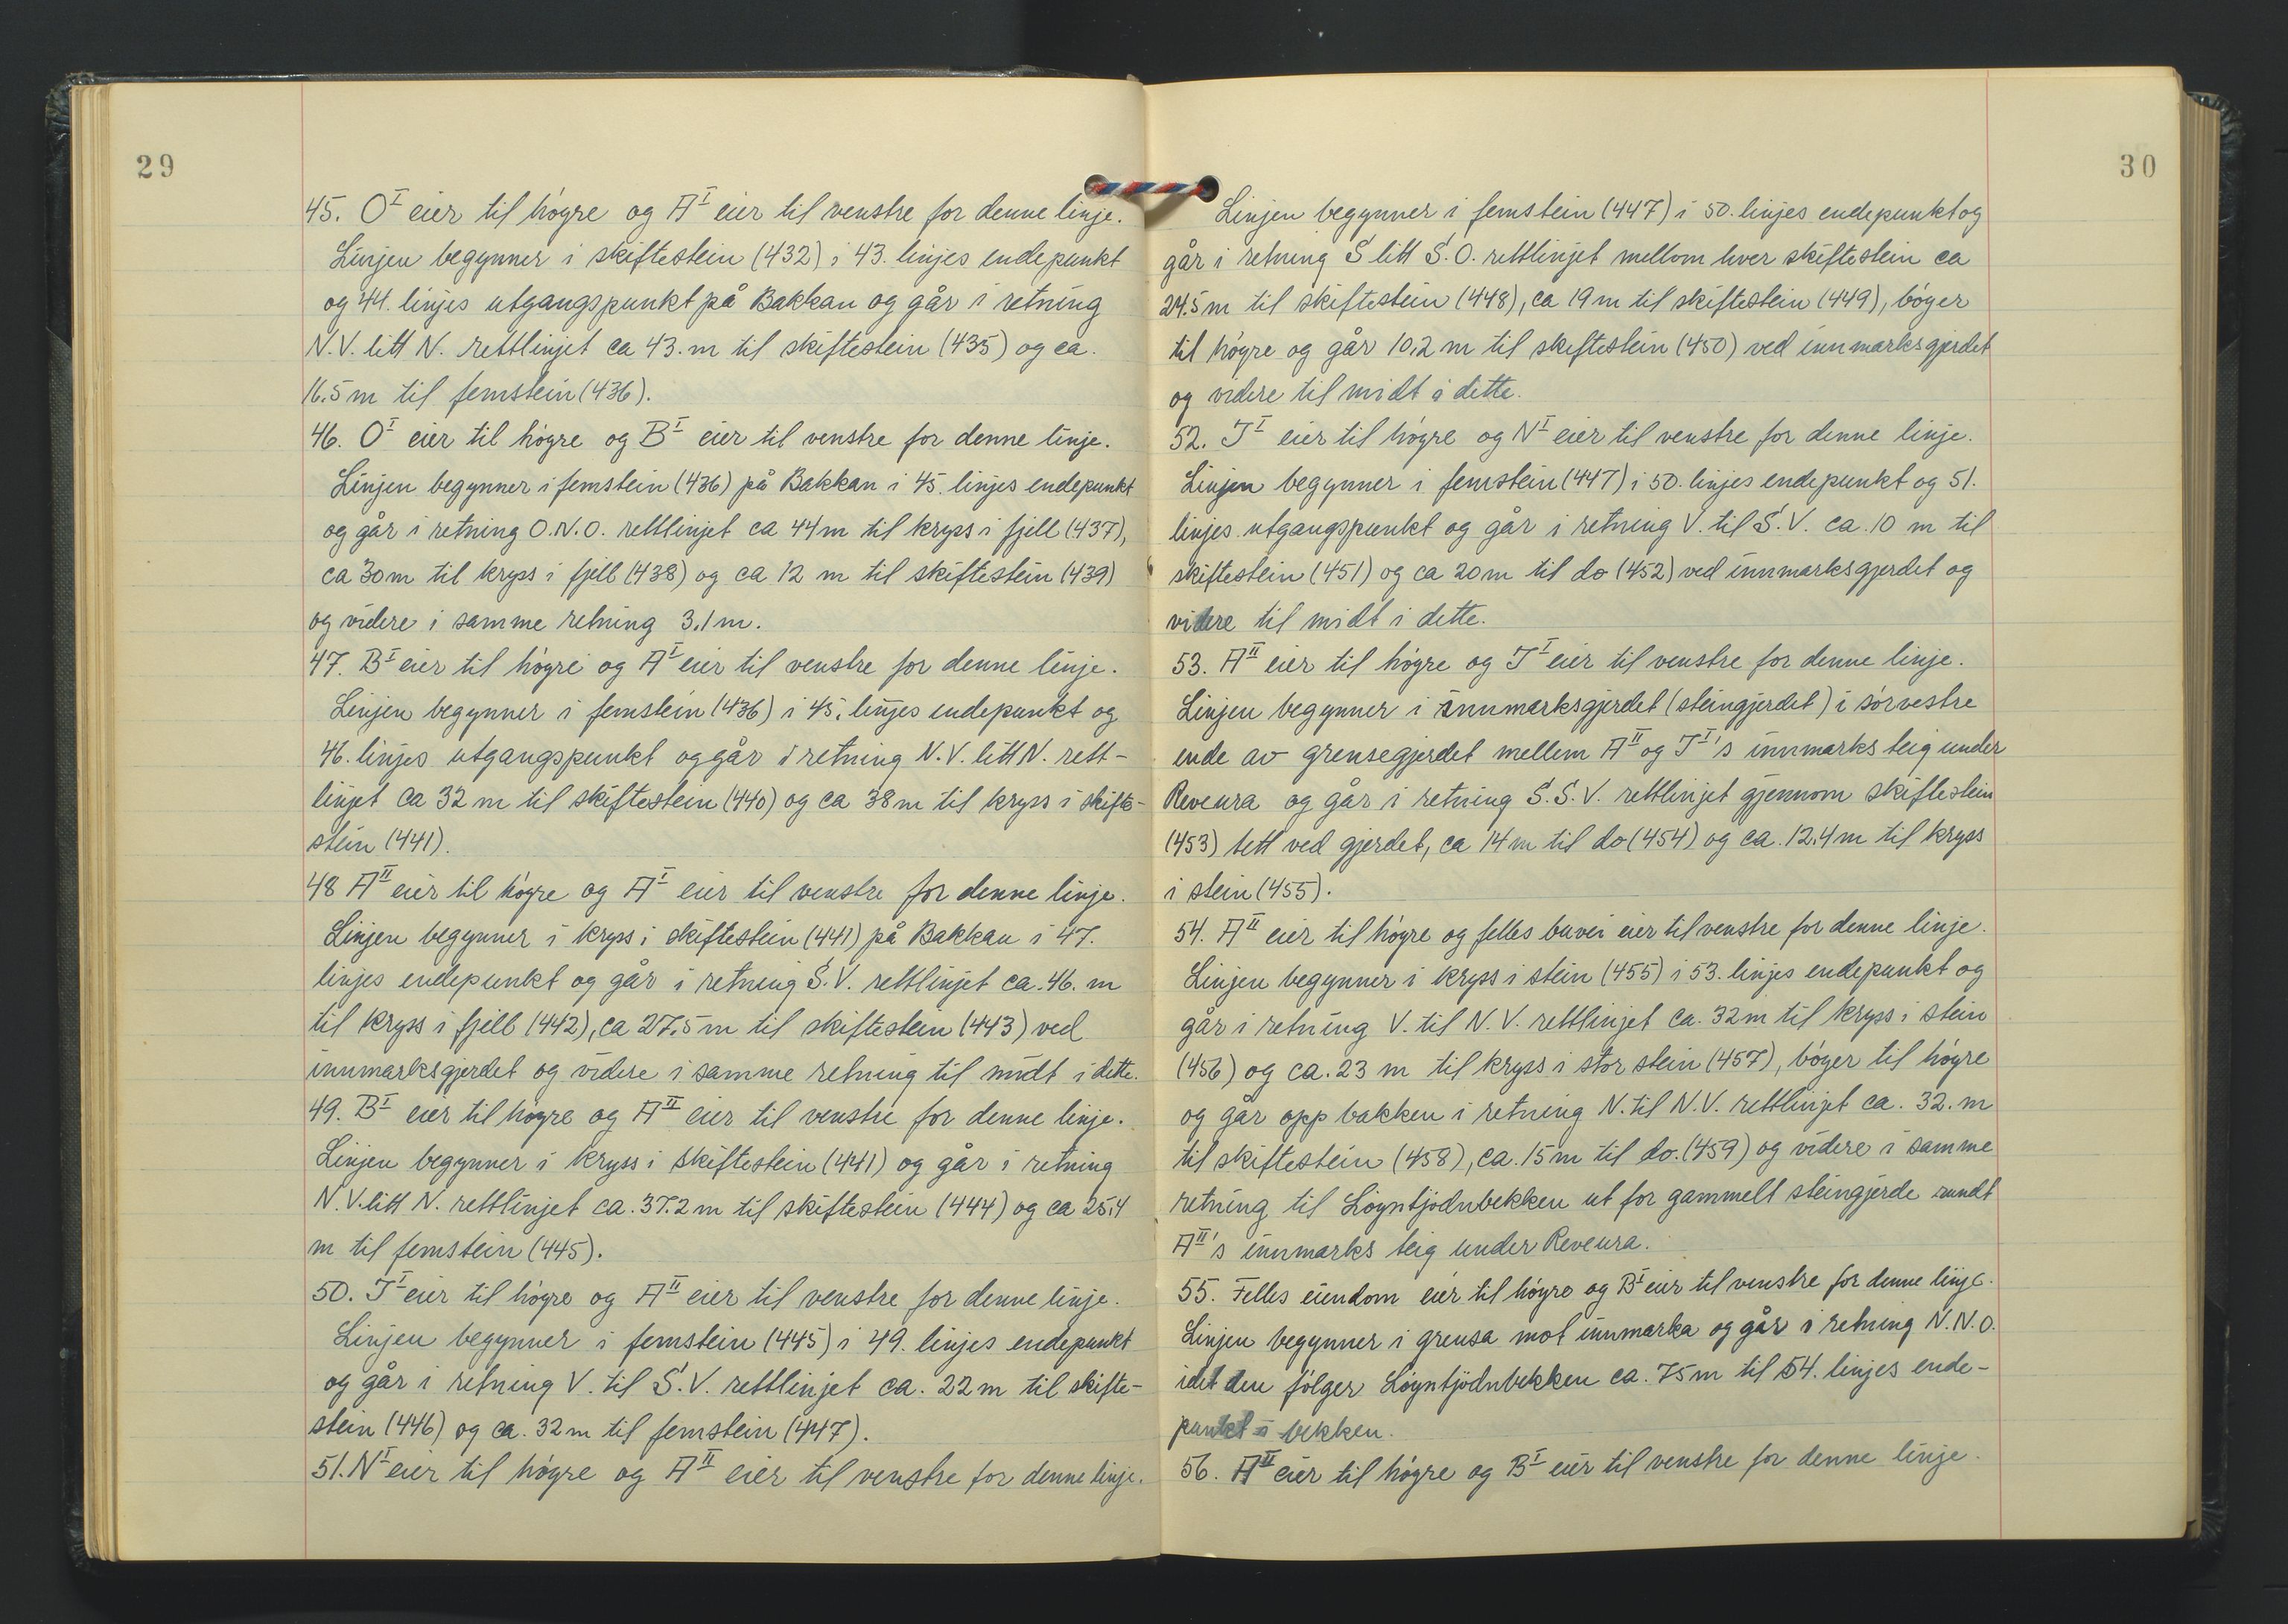 29
45. O^I eier til høgre og A^I eier til venstre for denne linje.
Linjen begynner i skiftestein (432) i 43. linjes endepunkt
og 44. linjes utgangspunkt på Bakkan og går i retning
N.V. litt N. rettlinjet ca 43. m til skiftestein (435) og ca.
16.5 m til femstein (436).
46. O^I eier til høgre og B^I eier til venstre for denne linje.
Linjen begynner i femstein (436) på Bakkan i 45. linjes endepunkt
og går i retning O.N.O. rettlinjet ca 44 m til kryss i fjell (437),
ca 30 m til kryss i fjell (438) og ca 12 m til skiftestein (439)
og videre i samme retning 3,1 m.
47. B^I eier til høgre og A^I eier til venstre for denne linje.
Linjen begynner i femstein (436) i 45. linjes endepunkt og
46. linjes utgangspunkt og går i retning N.V. litt N. rett-
linjet ca 32 m til skiftestein (440) og ca 38 m til kryss i skifte-
stein (441).
48 A^II eier til høgre og A^I eier til venstre for denne linje.
Linjen begynner i kryss i skiftestein (441) på Bakkan i 47.
linjes endepunkt og går i retning S.V. rettlinjet ca. 46. m
til kryss i fjell (442), ca 27,5 m til skiftestein (443) ved
innmarksgjerdet og videre i samme retning til midt i dette.
49. B^I eier til høgre og A^II eier til venstre for denne linje.
Linjen begynner i kryss i skiftestein (441) og går i retning
N.V. litt N. rettlinjet ca. 37.2 m til skiftestein (444) og ca 25,4
m til femstein (445).
50. J^I eier til høgre og A^II eier til venstre for denne linje.
Linjen begynner i femstein (445) i 49. linjes endepunkt
og går i retning V. til S.V. rettlinjet ca. 22 m til skifte-
stein (446) og ca. 32 m til femstein (447).
51. N^I eier til høgre og A^II eier til venstre for denne linje.
30
Linjen begynner i femstein (447) i 50. linjes endepunkt og
går i retning S litt S.O. rettlinjet mellom hver skiftestein ca
24.5 m til skiftestein (448), ca 19 m til skiftestein (449), bøyer
til høgre og går 10,2 m til skiftestein (450) ved innmarksgjerdet
og videre til midt i dette.
52. J^I eier til høgre og N^I eier til venstre for denne linje.
Linjen begynner i femstein (447) i 50. linjes endepunkt og 51.
linjes utgangspunkt og går i retning V. til S.V. ca. 10 m til
skiftestein (451) og ca 20 m til do (452) ved innmarksgjerdet og
videre til midt i dette.
53. A^II eier til høgre og J^I eier til venstre for denne linje.
Linjen begynner i innmarksgjerdet (steingjerdet) i sørvestre
ende av grensegjerdet mellem A^II og J^I's innmarks teig under
Reveura og går i retning S.S.V. rettlinjet gjennom skiftestein
(453) tett ved gjerdet, ca 14 m til do (454) og ca. 12,4 m til kryss
i stein (455).
54. A^II eier til høgre og felles buvei eier til venstre for denne linje.
Linjen begynner i kryss i stein (455) i 53. linjes endepunkt og
går i retning V. til N.V. rettlinjet ca. 32 m til kryss i stein
(456) og ca. 23 m til kryss i stor stein (457), bøyer til høgre
og går opp bakken i retning N. til N.V. rettlinjet ca. 32. m
til skiftestein (458), ca. 15 m til do. (459) og videre i samme
retning til Løyntjødnbekken ut for gammelt steingjerde rundt
A^II's innmarks teig under Reveura.
55. Felles eiendom eier til høgre og B^I eier til venstre for denne linje.
Linjen begynner i grensa mot innmarka og går i retning N.N.O.
idet den følger Løyntjødnbekken ca. 75 m til 54. linjes ende-
punkt i bekken.
56. A^II eier til høgre og B^I eier til venstre for denne linje.